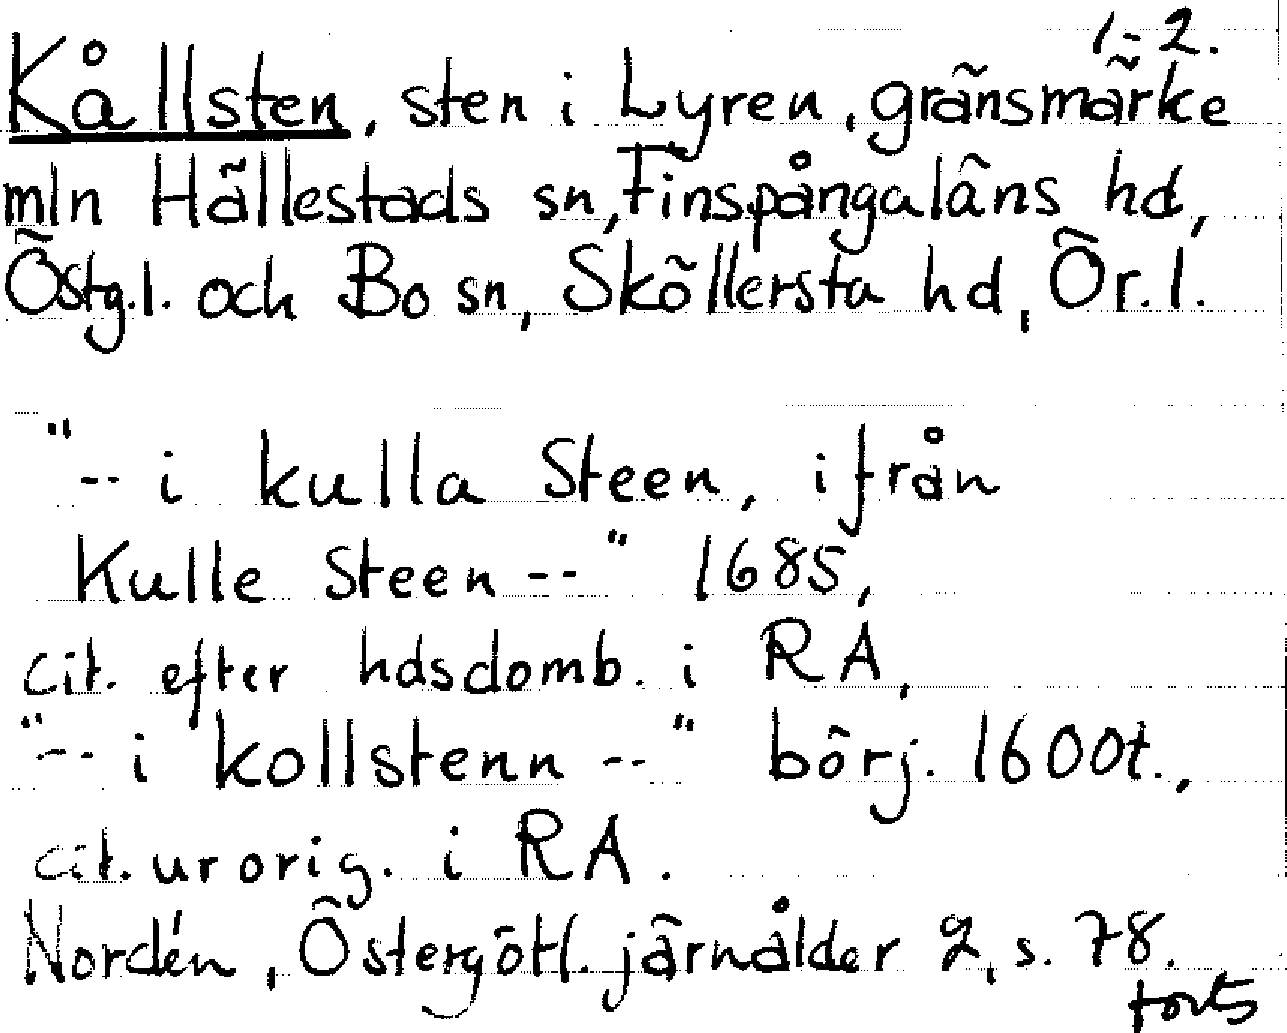 1-2.
Kållsten, sten i Lyren, gränsmärke
mln Hällestads sn, Finspångaläns hd,
Östg.l. och Bo sn, Sköllersta hd, Ör.l.
"-- i kulla Steen, ifrån
Kulle Steen --" 1685,
cit. efter hdsdomb. i RA,
"-- i kollstenn --" börj. 1600t.,
cit. ur orig. i RA.
Nordén, Östergötl. järnålder 2, s. 78.
forts